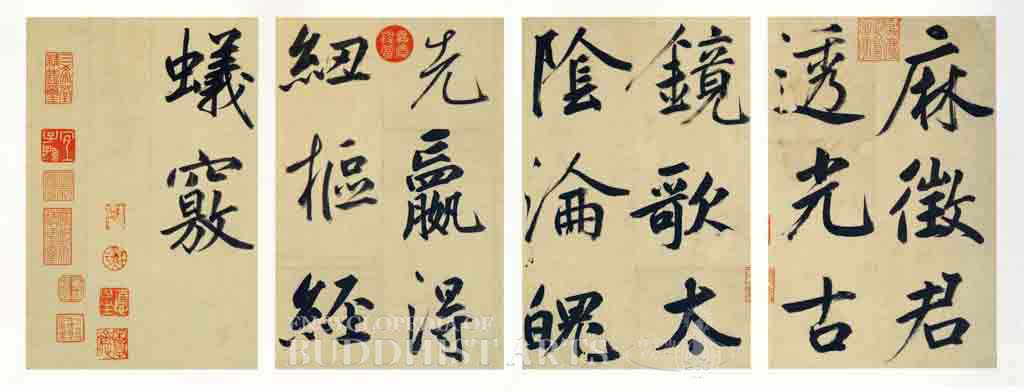 麻徵君
透光古
鏡歌大
陰淪魄
先嬴得
紐樞經
蟻竅
ENCYCLOPEDIA OF
BUDDHIST ARTS